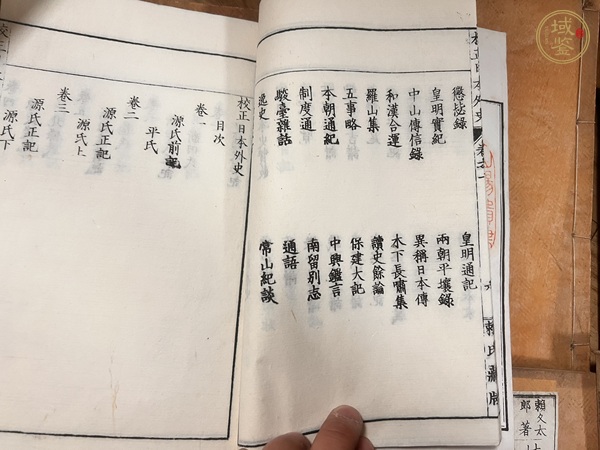 懲毖錄
皇明通記
皇明實紀
兩朝平攘錄
中山傳信錄
異稱日本傳
和漢合運
木下長嘯集
羅山集
讀史餘論
五事略
保建大記
本朝通紀
中興鑑言
制度通
南留別志
駿臺雜話
通語
逸史
常山紀談
校正日本外史
目次
卷一
源氏前記
平氏
卷二
源氏正記
源氏上
卷三
源氏正記
源氏下
賴氏藏版
賴久太
郎著
域鉴